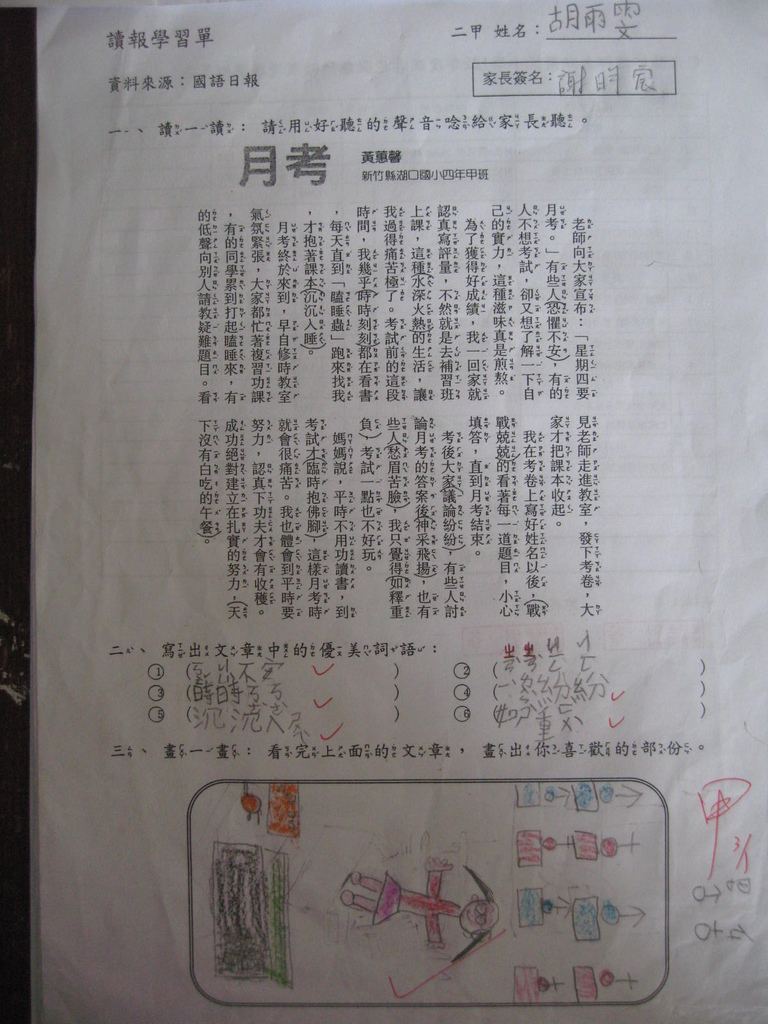 讀報學習單
二甲 姓名：胡雨雯
資料來源：國語日報
家長簽名：謝
一、讀一讀：請用好聽的聲音唸給家長聽。
月考
黃蕙馨
新竹縣湖口國小四年甲班
老師向大家宣布：「星期四要
月考。」有些人(恐懼不安)，有的
人不想考試，卻又想了解一下自
己的實力，這種滋味真是煎熬。
為了獲得好成績，我一回家就
認真寫評量，不然就是去補習班
上課，這種水深火熱的生活，讓
我過得痛苦極了。考試前的這段
時間，我幾乎(時時刻刻)都在看書
，每天直到「瞌睡蟲」跑來找我
，才抱著課本(沉沉入睡)。
月考終於來到，早自修時教室
氣氛緊張，大家都忙著複習功課
，有的同學累到打起瞌睡來，有
的低聲向別人請教疑難題目。看
見老師走進教室，發下考卷，大
家才把課本收起。
我在考卷上寫好姓名以後，(戰
戰兢兢)的看著每一道題目，小心
填答，直到月考結束。
考後大家(議論紛紛)，有些人討
論月考的答案後(神采飛揚)，也有
些人(愁眉苦臉)，我只覺得(如釋重
負)，考試一點也不好玩。
媽媽說，平時不用功讀書，到
考試才(臨時抱佛腳)，這樣月考時
就會很痛苦。我也體會到平時要
努力，認真下功夫才會有收穫。
成功絕對建立在扎實的努力，(天
下沒有白吃的午餐)。
二、寫出文章中的優美詞語：
①( ㄎㄨㄥˇ 不安 ) ②( )
③( 時時ㄎㄜˋㄎㄜˋ ) ④( 紛紛 )
⑤( 沉沉入 ) ⑥( 如 重 )
三、畫一畫：看完上面的文章，畫出你喜歡的部份。
甲
3/1